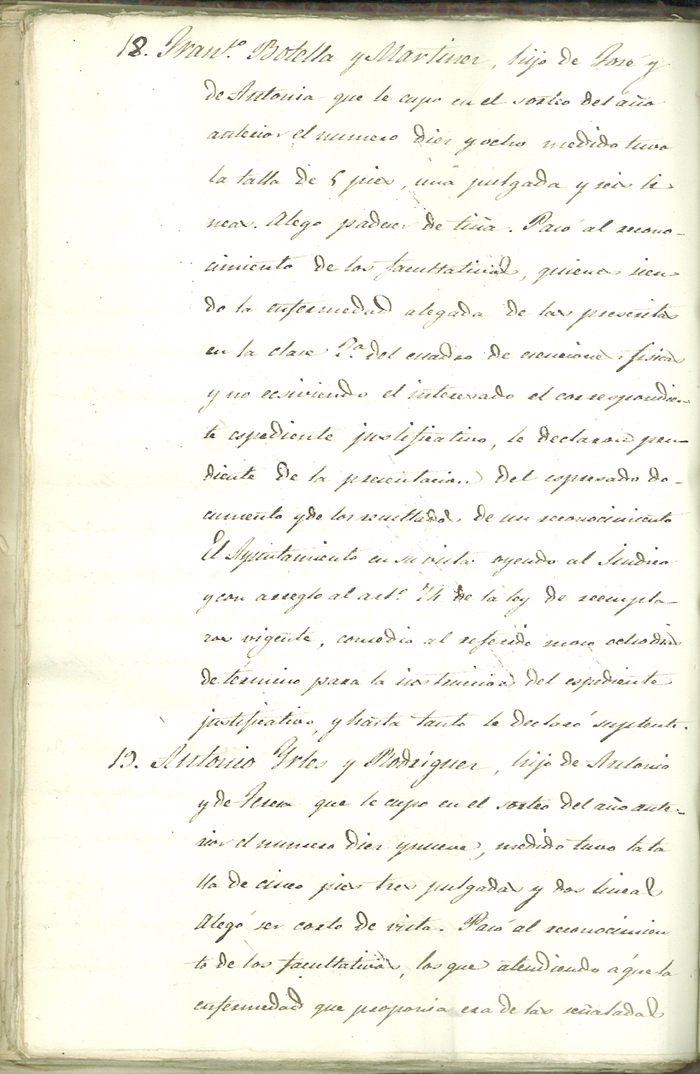 18. Fran.co Botella y Martinez, hijo de José y
de Antonia que le cupo en el sorteo del año
anterior el numero diez y ocho medido tuvo
la talla de 5 pies, una pulgada y seis li
neas. Alego padecer de tiña. Pasó al recono-
cimiento de los facultativos, quienes sien
do la enfermedad alegada de las prescritas
en la clase 2.a del cuadro de exenciones fisicas
y no ecsiviendo el interesado el correspondien
te espediente justificativo, le declaran pen-
diente de la presentacion del espresado do-
cumento y de los resultados de un reconocimiento
El Ayuntamiento en su vista oyendo al Sindico
y con arreglo al art.o 74 de la ley de reempla
zos vigente, concedio al referido mozo ocho dias
de término para la instruccion del espediente
justificativo, y hasta tanto le declaró suplente.
19. Antonio Yrles y Rodriguez, hijo de Antonio
y de Teresa que le cupo en el sorteo del año ante-
rior el numero diez y nueve, medido tuvo la ta
lla de cinco pies tres pulgadas y dos lineas
Alegó ser corto de vista. Pasó al reconocimien
to de los facultativos, los que atendiendo á que la
enfermedad que proponia era de las señaladas